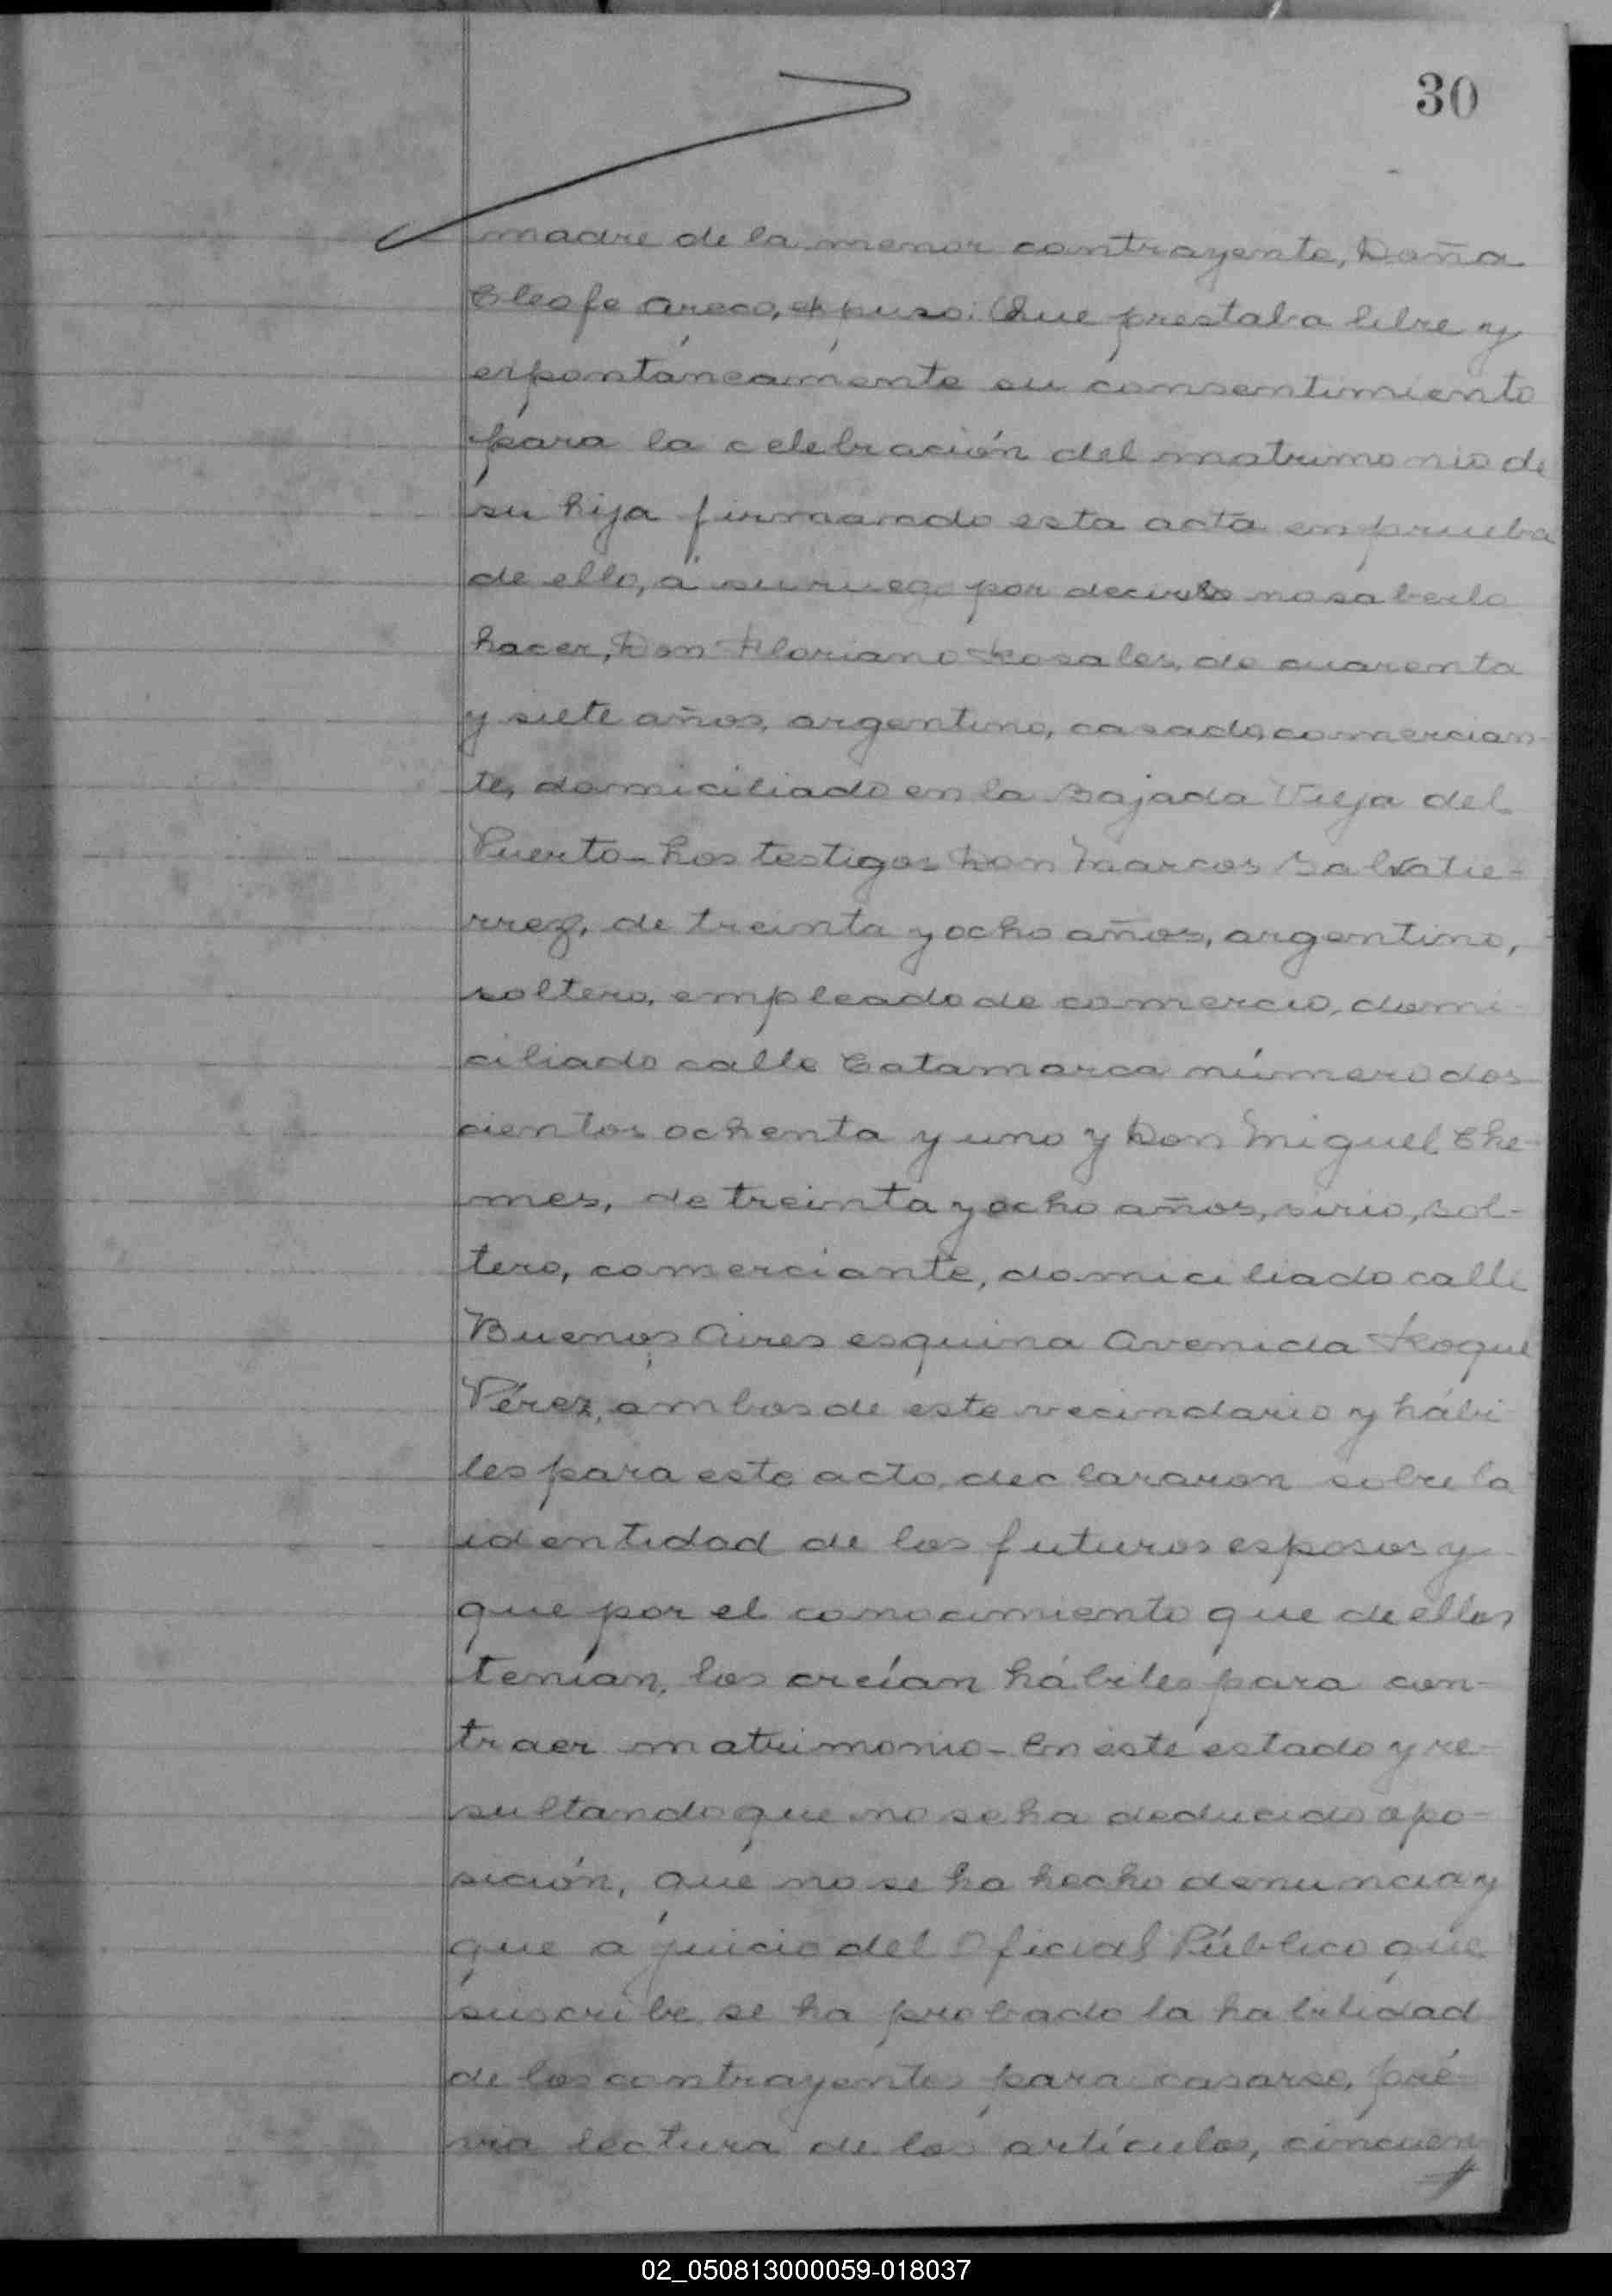 30
madre de la menor contrayente, Doña
Cleofe Areco, expuso: Que prestaba libre y
espontáneamente su consentimiento
para la celebración del matrimonio de
su hija firmando esta acta en prueba
de ello, á su ruego por decirlo no saberlo
hacer, Don Floriano Rosales, de cuarenta
y siete años, argentino, casado, comercian-
te, domiciliado en la Bajada Vieja del
Puerto - Los testigos Don Marcos Salvatie-
rrez, de treinta y ocho años, argentino,
soltero, empleado de comercio, domi-
ciliado calle Catamarca número dos
cientos ochenta y uno y Don Miguel Che-
mes, de treinta y ocho años, sirio, sol-
tero, comerciante, domiciliado calle
Buenos Aires esquina Avenida Roque
Pérez, ambos de este vecindario y hábi-
les para este acto, declararon sobre la
identidad de los futuros esposos y
que por el conocimiento que de ellos
tenían, los creían hábiles para con-
traer matrimonio - En este estado y re-
sultando que no se ha deducido opo-
sición, que no se ha hecho denuncia y
que a juicio del Oficial Público que
suscribe se ha probado la habilidad
de los contrayentes para casarse, pré-
via lectura de los artículos, cincuen
02_050813000059-018037